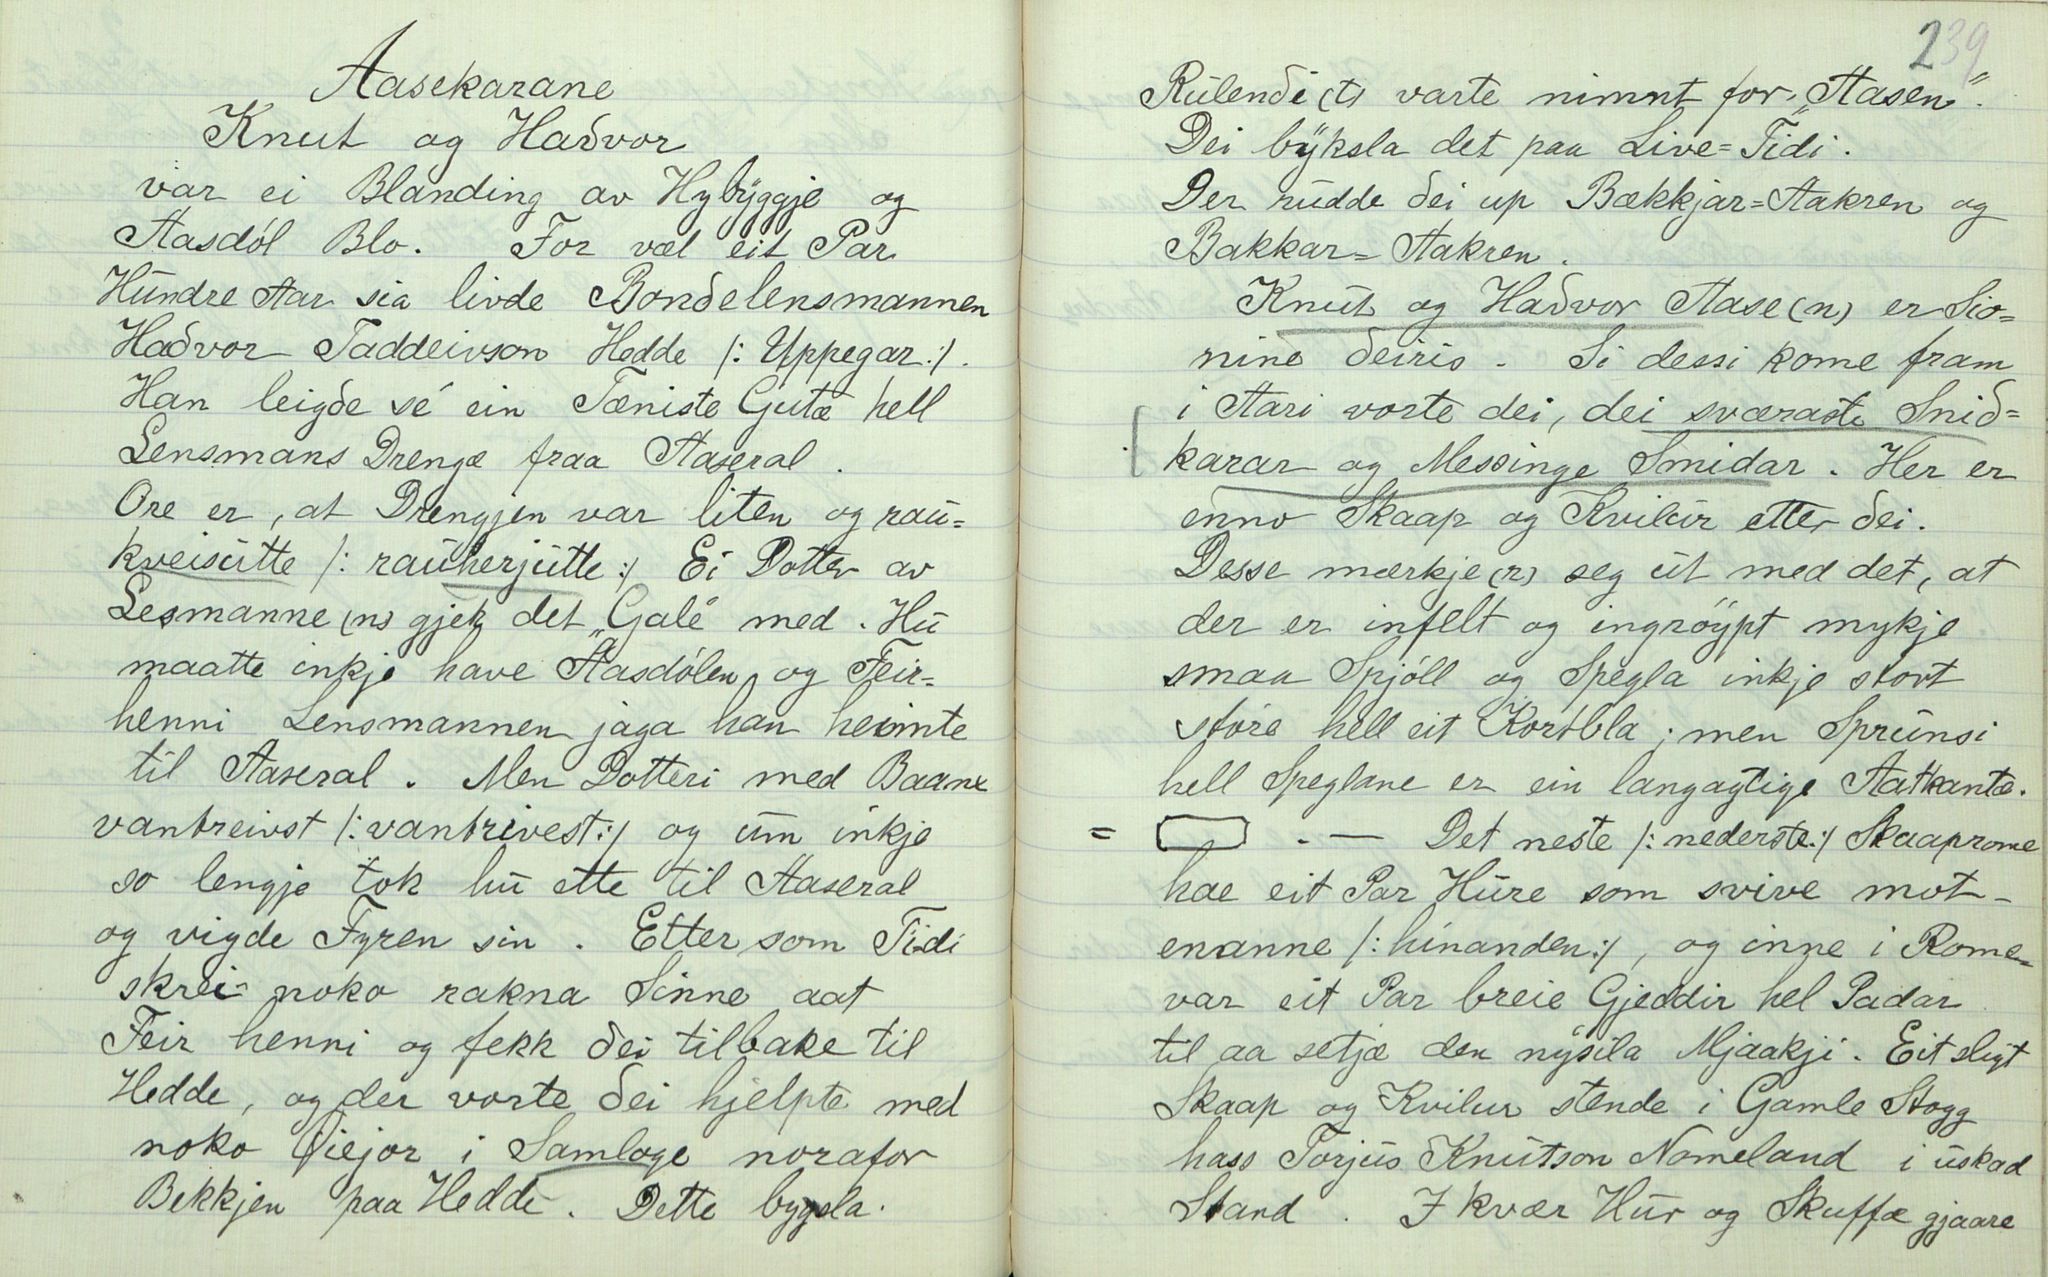 Aasekarane
Knut og Haðvor
var ei Blanding av Hybÿggje og
Aasdól Blo. For væl eit Par
Hundre Aar sia livde Bonðelensmannen
Haðvor Taddeivson Hedde /: Uppegar :/.
Han leigðe sé ein Tæniste Gutæ hell
Lensmans Drengæ fraa Aaseral.
Ore er, at Drengjen var liten og rau=
kveisutte /: rauherjutte :/ Ei Dotter av
Lesmanne(n) gjek det „Galé" med. Hu
maatte inkje have Aasdólen og Feir=
henni Lensmannen jaga han heimte
til Aaseral. Men Dotteri med Baane
vantreivst /: vantrivest :/ og um inkje
so lengje tok hu ette til Aaseral
og vigde Fyren sin. Etter som Tidi
skrei noko rakna Sinne aat
Feir henni og fekk ðei tilbake til
Hedde, og der vorte ðei hjelpte med
noko Qiejor i Samloge norafor
Bekkjen paa Hedde. Dette bygsla
239
Rulenði(t) varte nimnt for „Aasen".
Dei bÿksla det paa Live=Tidi.
Der rudde ðei up Bækkjar=Aakren og
Bakkar=Aakren.
Knut og Haðvor Aase(n) er Sio=
nine ðeiris. Si dessi kome fram
i Aari vorte dei, dei sværaste Snið=
karar og Messinge Smidar. Her er
enno Skaap og Kvilur etter ðei.
Desse mærkje(r) seg ut med det, at
der er infelt og ingröypt mykje
smaa Spjóll og Spegla inkje stort
stóre hell eit Kortbla; men Sprunsi
hell Speglane er ein langagtige Aatkantæ.
= — Det neste /: nederste :/ Skaaprome
hae eit Par Hure som svive mot-
enanne /: hinanden :/, og inne i Rome-
var eit Par breie Gjeddir hel Padar
til aa setjæ den nýsila Mjaakji. Eit sligt
Skaap og Kvilur stende i Gamle Stogg
hass Torjus Knutson Nomeland i uskad
Stand. I kvær Hur og Skuffæ gjaare